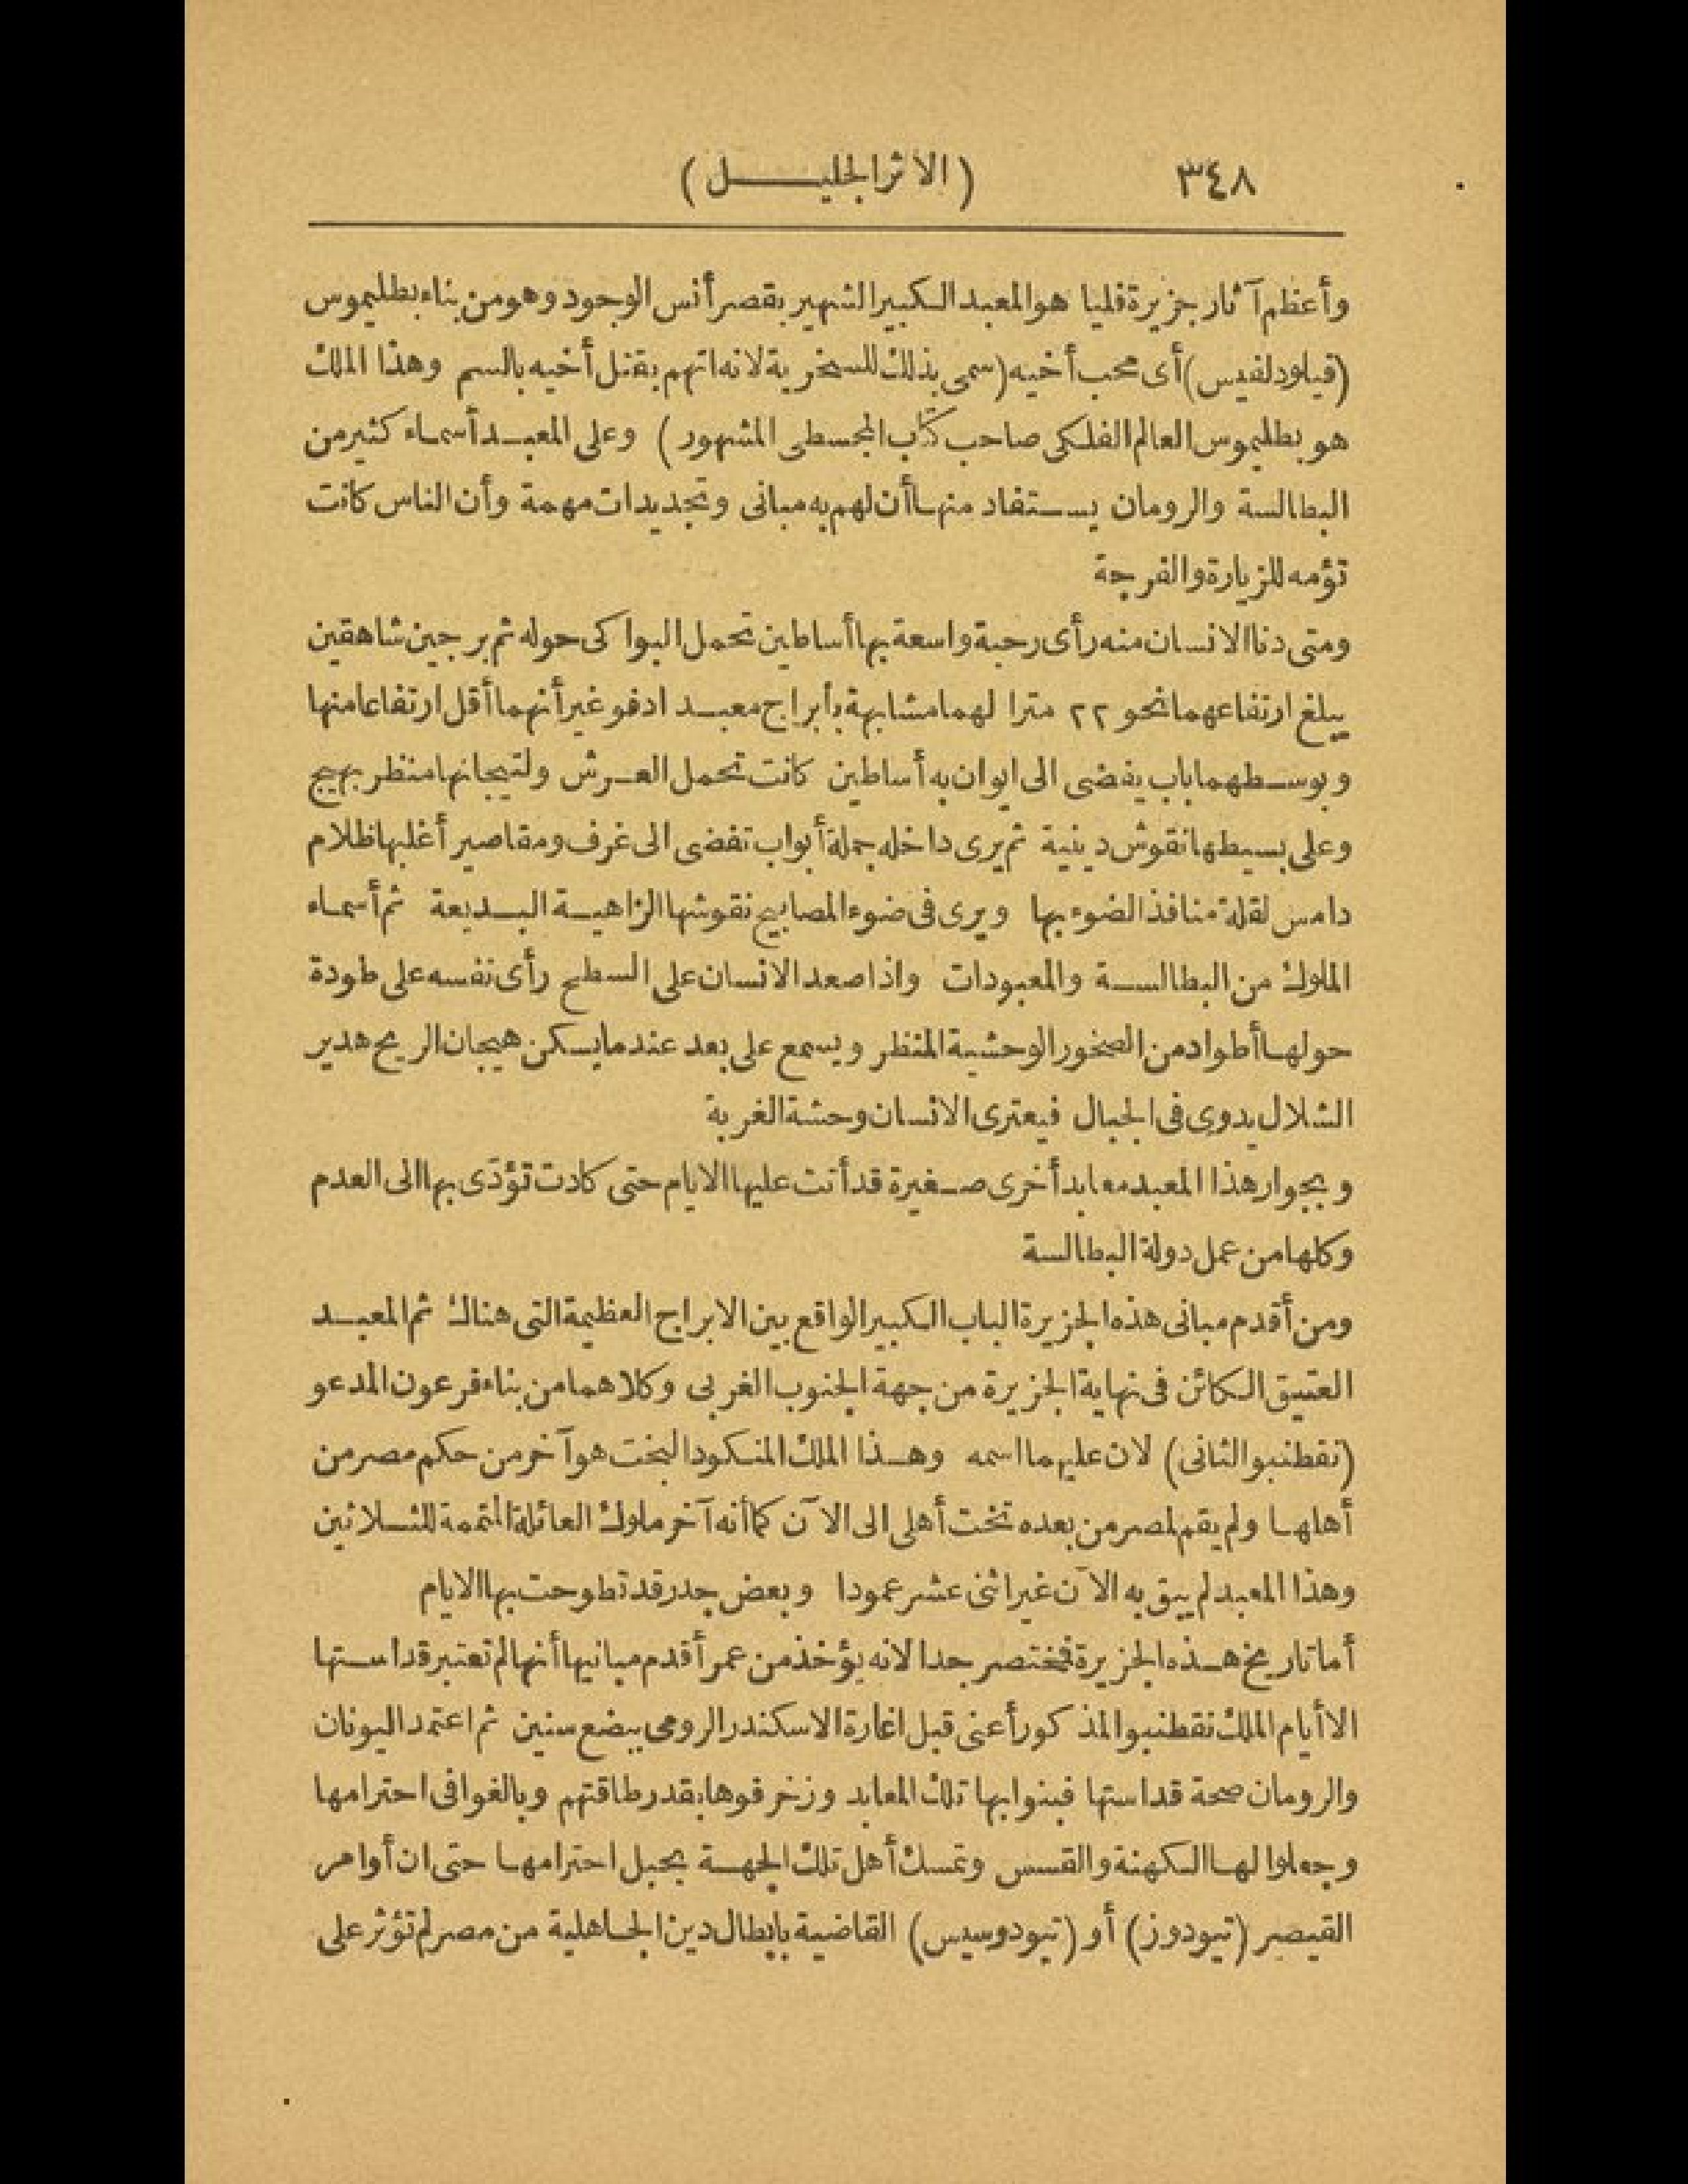 ٣٤٨ (الاثر الجليل)
وأعظم آثار جزيرة فليا هو المعبد الكبير الشهير بقصر أنس الوجود وهو من بناء بطليموس
(فيلودلفيس) أى محب أخيه (سمى بذلك للسخرية لانه اتهم بقتل أخيه بالسم وهذا الملك
هو بطليموس العالم الفلكى صاحب كتاب المجسطى المشهور) وعلى المعبد أسماء كثير من
البطالسة والرومان يستفاد منها أن لهم به مبانى وتجديدات مهمة وأن الناس كانت
تؤمه للزيارة والفرجة
ومتى دنا الانسان منه رأى رحبة واسعة بها أساطين تحمل البواكى حوله ثم برجين شاهقين
يبلغ ارتفاعهما نحو ٢٢ مترا لهما مشابهة بأبراج معبد ادفو غير أنهما أقل ارتفاعا منها
وبوسطهما باب يفضى الى ايوان به أساطين كانت تحمل العرش ولتيجانها منظر بهيج
وعلى بسيطها نقوش دينية ثم يرى داخله جملة أبواب تفضى الى غرف ومقاصير أغلبها ظلام
دامس لقلة منافذ الضوء بها ويرى فى ضوء المصابيح نقوشها الزاهية البديعة ثم أسماء
الملوك من البطالسة والمعبودات واذا صعد الانسان على السطح رأى نفسه على طودة
حولها أطواد من الصخور الوحشية المنظر ويسمع على بعد عند ما يسكن هيجان الريح هدير
الشلال يدوى فى الجبال فيعترى الانسان وحشة الغربة
وبجوار هذا المعبد معابد أخرى صغيرة قد أتت عليها الايام حتى كادت تؤدّى بها الى العدم
وكلها من عمل دولة البطالسة
ومن أقدم مبانى هذه الجزيرة الباب الكبير الواقع بين الابراج العظيمة التى هناك ثم المعبد
العتيق الكائن فى نهاية الجزيرة من جهة الجنوب الغربى وكلاهما من بناء فرعون المدعو
(نقطنبو الثانى) لان عليهما اسمه وهذا الملك المنكود البخت هو آخر من حكم مصر من
أهلها ولم يقم لمصر من بعده تخت أهلى الى الآن كما أنه آخر ملوك العائلة المتممة للثلاثين
وهذا المعبد لم يبق به الآن غير اثنى عشر عمودا وبعض جدر قد تطوحت بها الايام
أما تاريخ هذه الجزيرة فمختصر جدا لانه يؤخذ من عمر أقدم مبانيها أنها لم تعتبر قداستها
الا أيام الملك نقطنبو المذكور أعنى قبل اغارة الاسكندر الرومى ببضع سنين ثم اعتمد اليونان
والرومان صحة قداستها فبنوا بها تلك المعابد وزخرفوها بقدر طاقتهم وبالغوا فى احترامها
وجعلوا لها الكهنة والقسس وتمسك أهل تلك الجهة بحبل احترامها حتى ان أوامر
القيصر (تيودوز) أو (تيودوسيس) القاضية بابطال دين الجاهلية من مصر لم تؤثر على